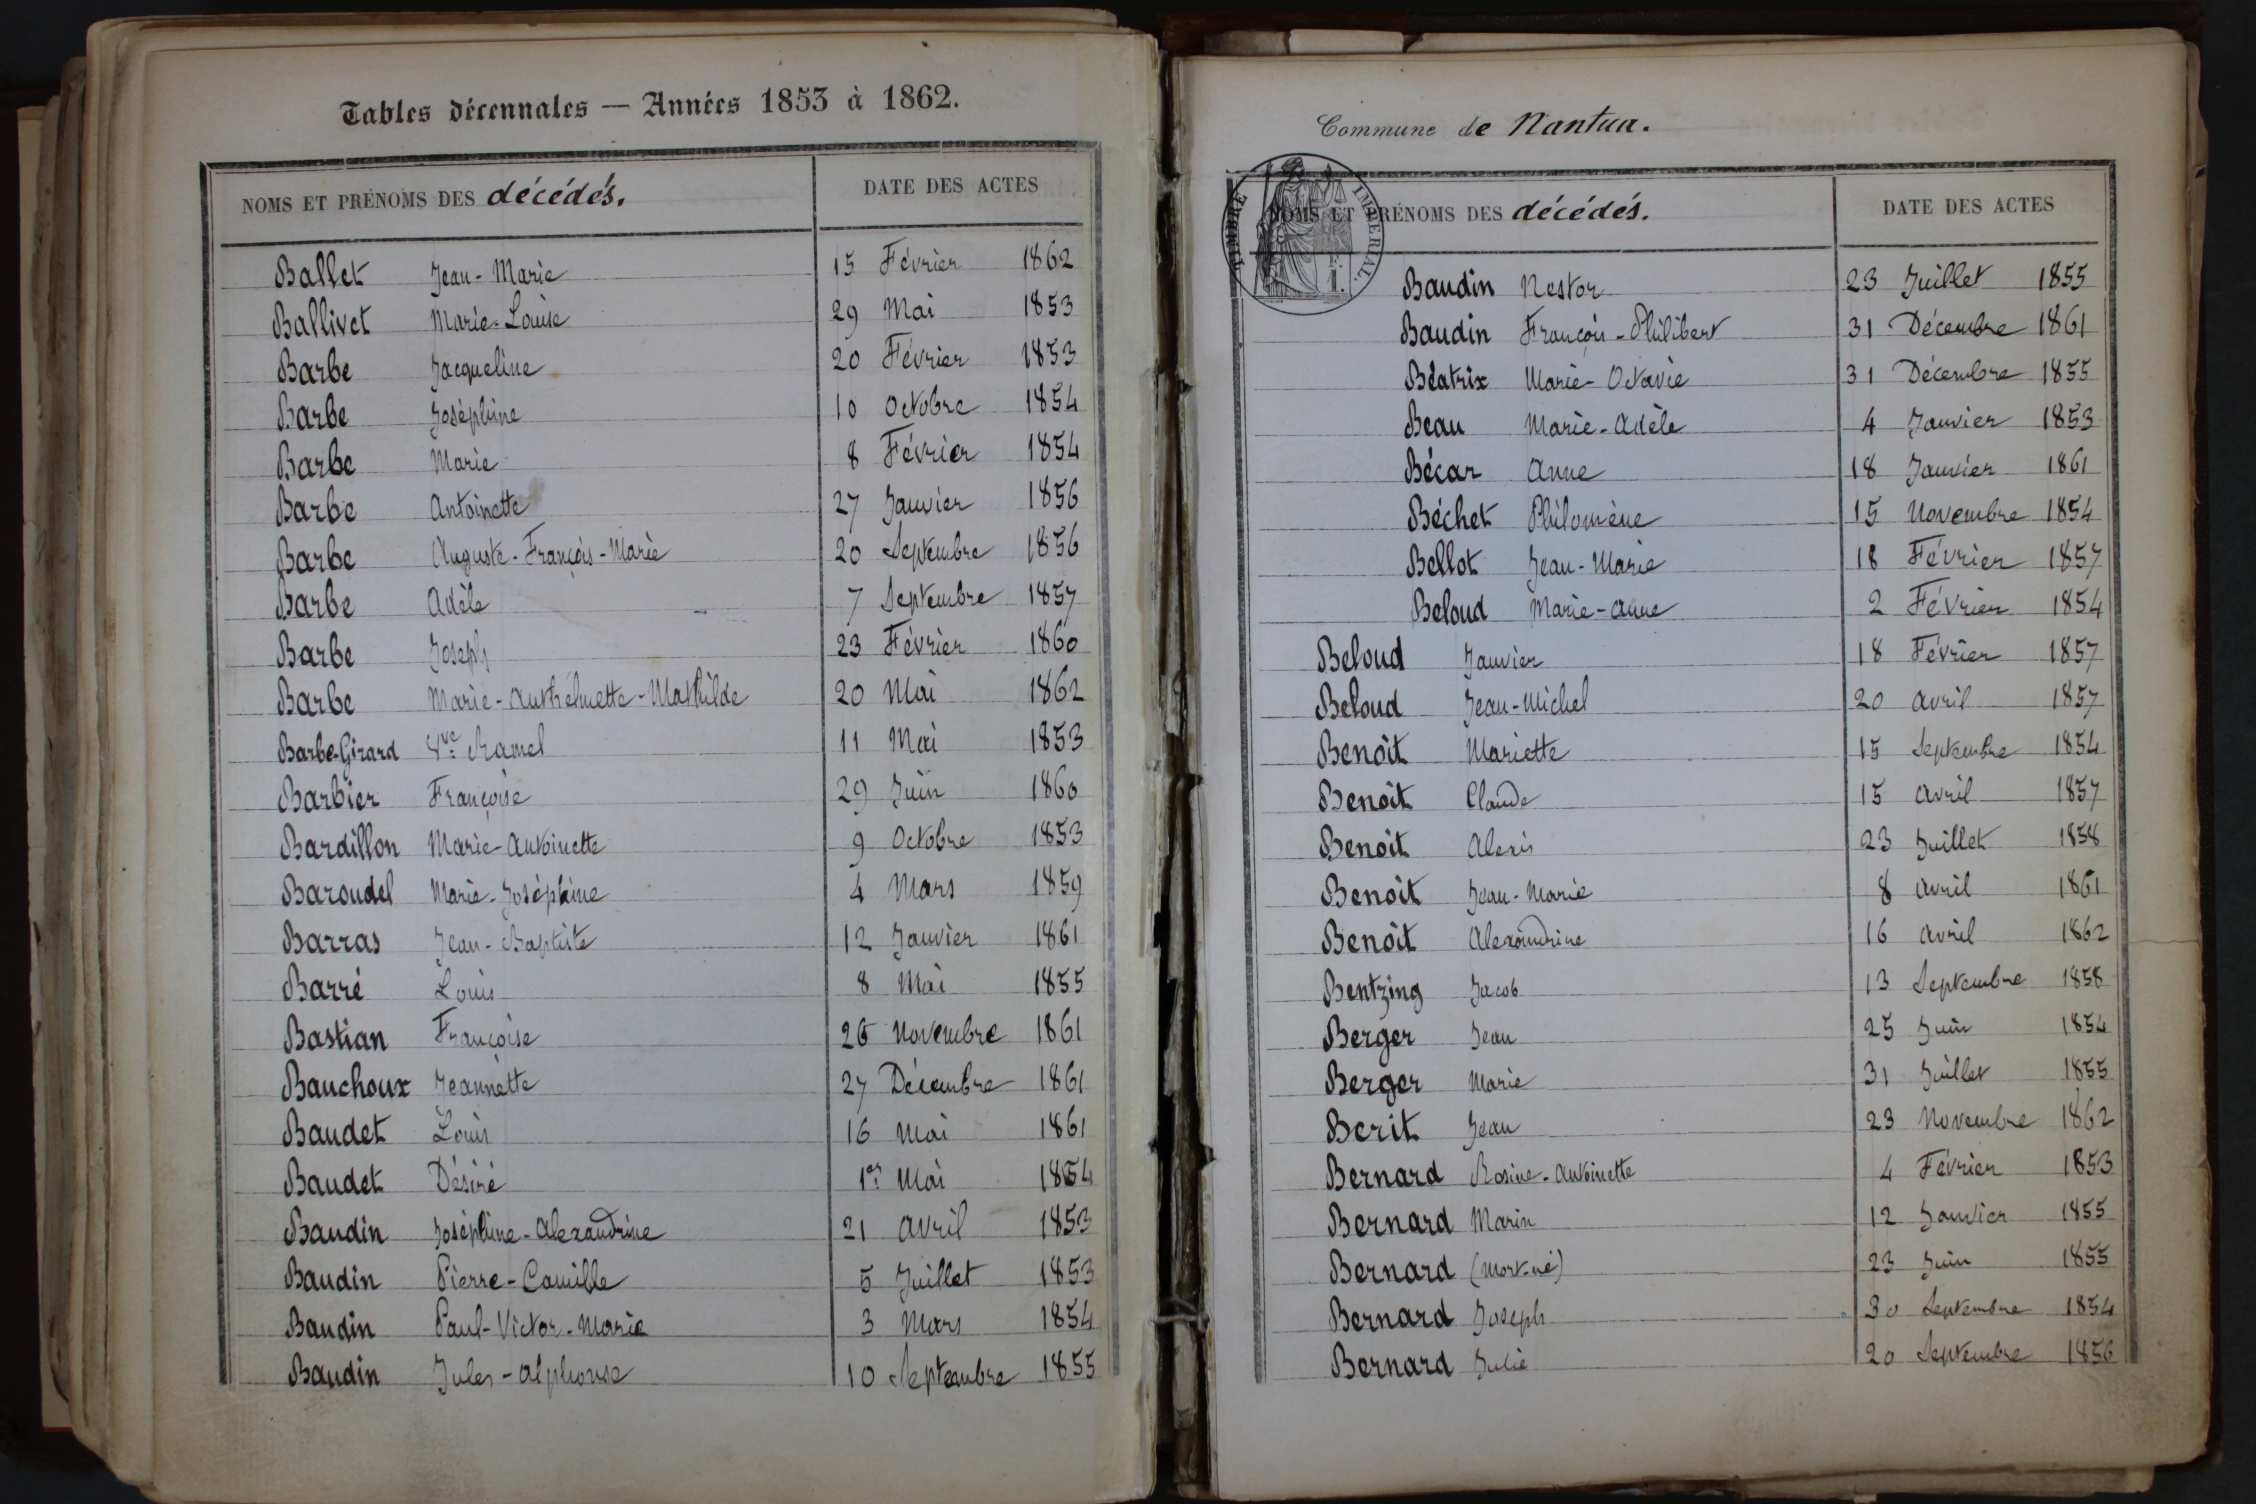 Tables décennales — Années 1853 à 1862.
NOMS ET PRÉNOMS DES décédés. DATE DES ACTES
Ballet Jean-Marie 15 Février 1862
Ballivet Marie-Louise 29 Mai 1853
Barbe Jacqueline 20 Février 1853
Barbe Joséphine 10 Octobre 1854
Barbe Marie 8 Février 1854
Barbe Antoinette 27 Janvier 1856
Barbe Auguste-François-Marie 20 Septembre 1856
Barbe Adèle 7 Septembre 1857
Barbe Joseph 23 Février 1860
Barbe Marie-Anthelmette-Mathilde 20 Mai 1862
Barbe-Girard Vve Ramel 11 Mai 1853
Barbier Françoise 29 Juin 1860
Bardillon Marie-Antoinette 9 Octobre 1853
Baroudel Marie-Joséphine 4 Mars 1859
Barras Jean-Baptiste 12 Janvier 1861
Barré Louis 8 Mai 1855
Bastian Françoise 26 Novembre 1861
Bauchoux Jeannette 27 Décembre 1861
Baudet Louis 16 Mai 1861
Baudet Désiré 1er Mai 1854
Baudin Joséphine-Alexandrine 21 Avril 1853
Baudin Pierre-Camille 5 Juillet 1853
Baudin Paul-Victor-Marie 3 Mars 1854
Baudin Jules-Alphonse 10 Septembre 1855
Commune de Nantua.
TIMBRE IMPERIAL.
NOMS ET PRÉNOMS DES décédés. DATE DES ACTES
Baudin Nestor 23 Juillet 1855
Baudin François-Philibert 31 Décembre 1861
Béatrix Marie-Octavie 31 Décembre 1855
Beau Marie-Adèle 4 Janvier 1853
Bécar Anne 18 Janvier 1861
Béchet Philomène 15 Novembre 1854
Bellot Jean-Marie 18 Février 1857
Beloud Marie-Anne 2 Février 1854
Beloud Janvier 18 Février 1857
Beloud Jean-Michel 20 Avril 1857
Benoît Mariette 15 Septembre 1854
Benoît Claude 15 Avril 1857
Benoît Alexis 23 Juillet 1858
Benoît Jean-Marie 8 Avril 1861
Benoît Alexandrine 16 Avril 1862
Bentzing Jacob 13 Septembre 1858
Berger Jean 25 Juin 1854
Berger Marie 31 Juillet 1855
Berit Jean 23 Novembre 1862
Bernard Rosine-Antoinette 4 Février 1853
Bernard Marin 12 Janvier 1855
Bernard (Mort-né) 23 Juin 1855
Bernard Joseph 30 Septembre 1854
Bernard Julie 20 Septembre 1856